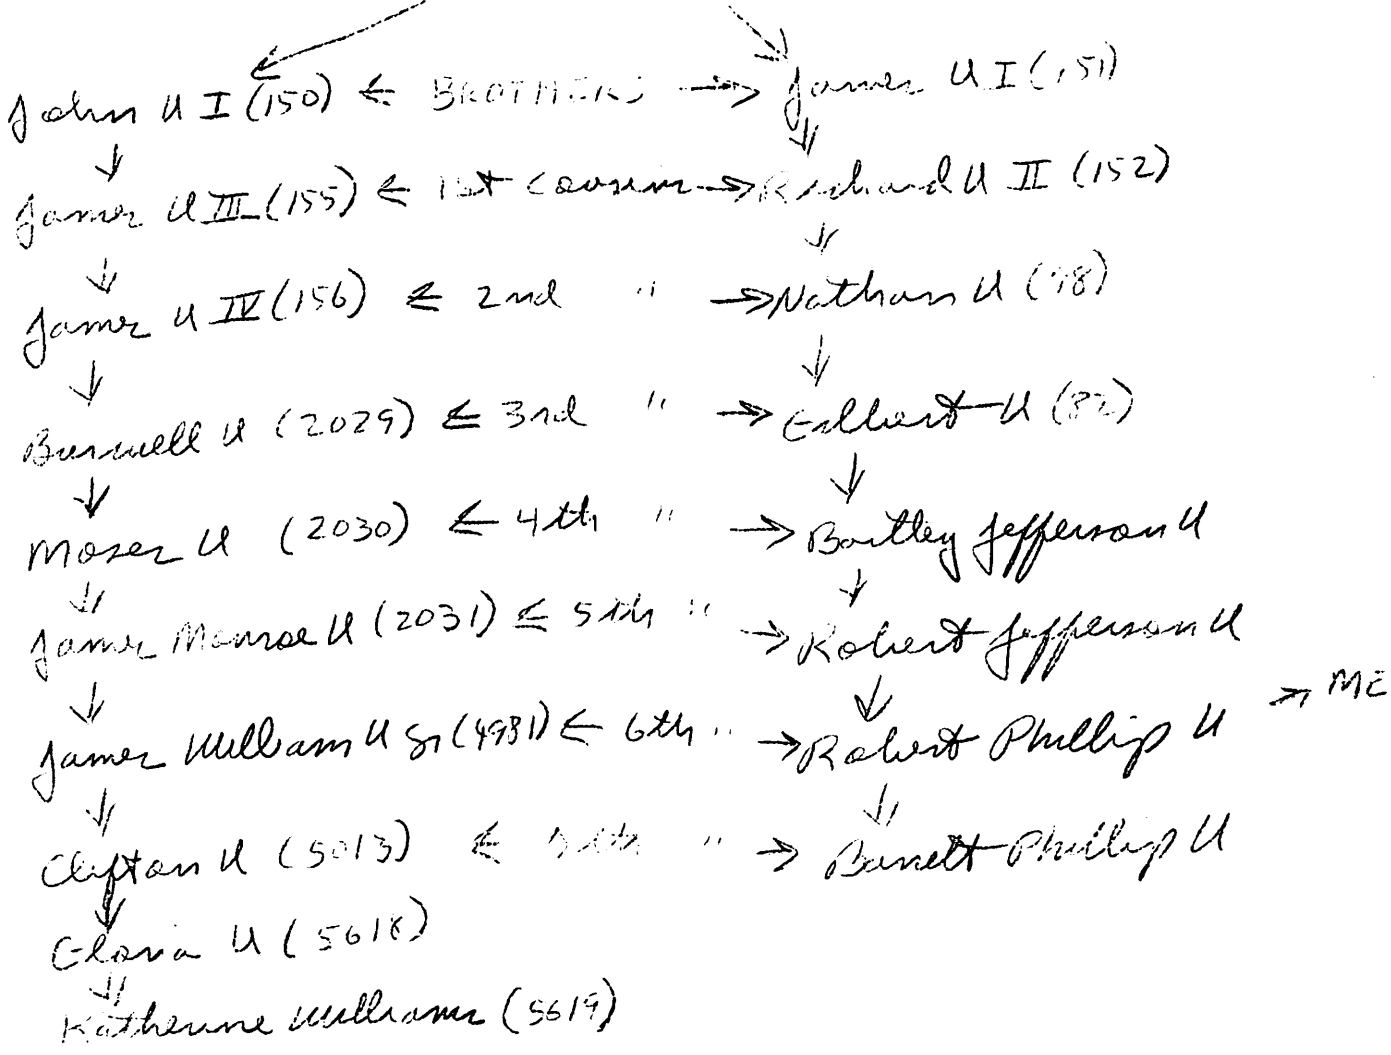 John U I (150) ← BROTHERS → James U I (151)
↓ ↓
James U III (155) ← 1st cousins → Richard U II (152)
↓ ↓
James U IV (156) ← 2nd " → Nathan U (98)
↓ ↓
Burwell U (2029) ← 3rd " → Gilbert U (82)
↓ ↓
Moses U (2030) ← 4th " → Bartley Jefferson U
↓ ↓
James Monroe U (2031) ← 5th " → Robert Jefferson U
↓ ↓
James William U Sr (4981) ← 6th " → Robert Phillip U → ME
↓ ↓
Clifton U (5013) ← 7th " → Barrett Phillip U
↓
Gloria U (5618)
↓
Katherine Williams (5619)